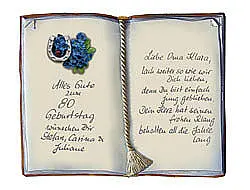 Alles Gute
zum
80
Geburtstag
wünschen Dir
Stefan, Carina &
Juliane
Liebe Oma Klara,
lach weiter so wie wir
Dich lieben,
denn Du bist einfach
jung geblieben.
Dein Herz hat seinen
frohen Klang
behalten all die Jahre
lang